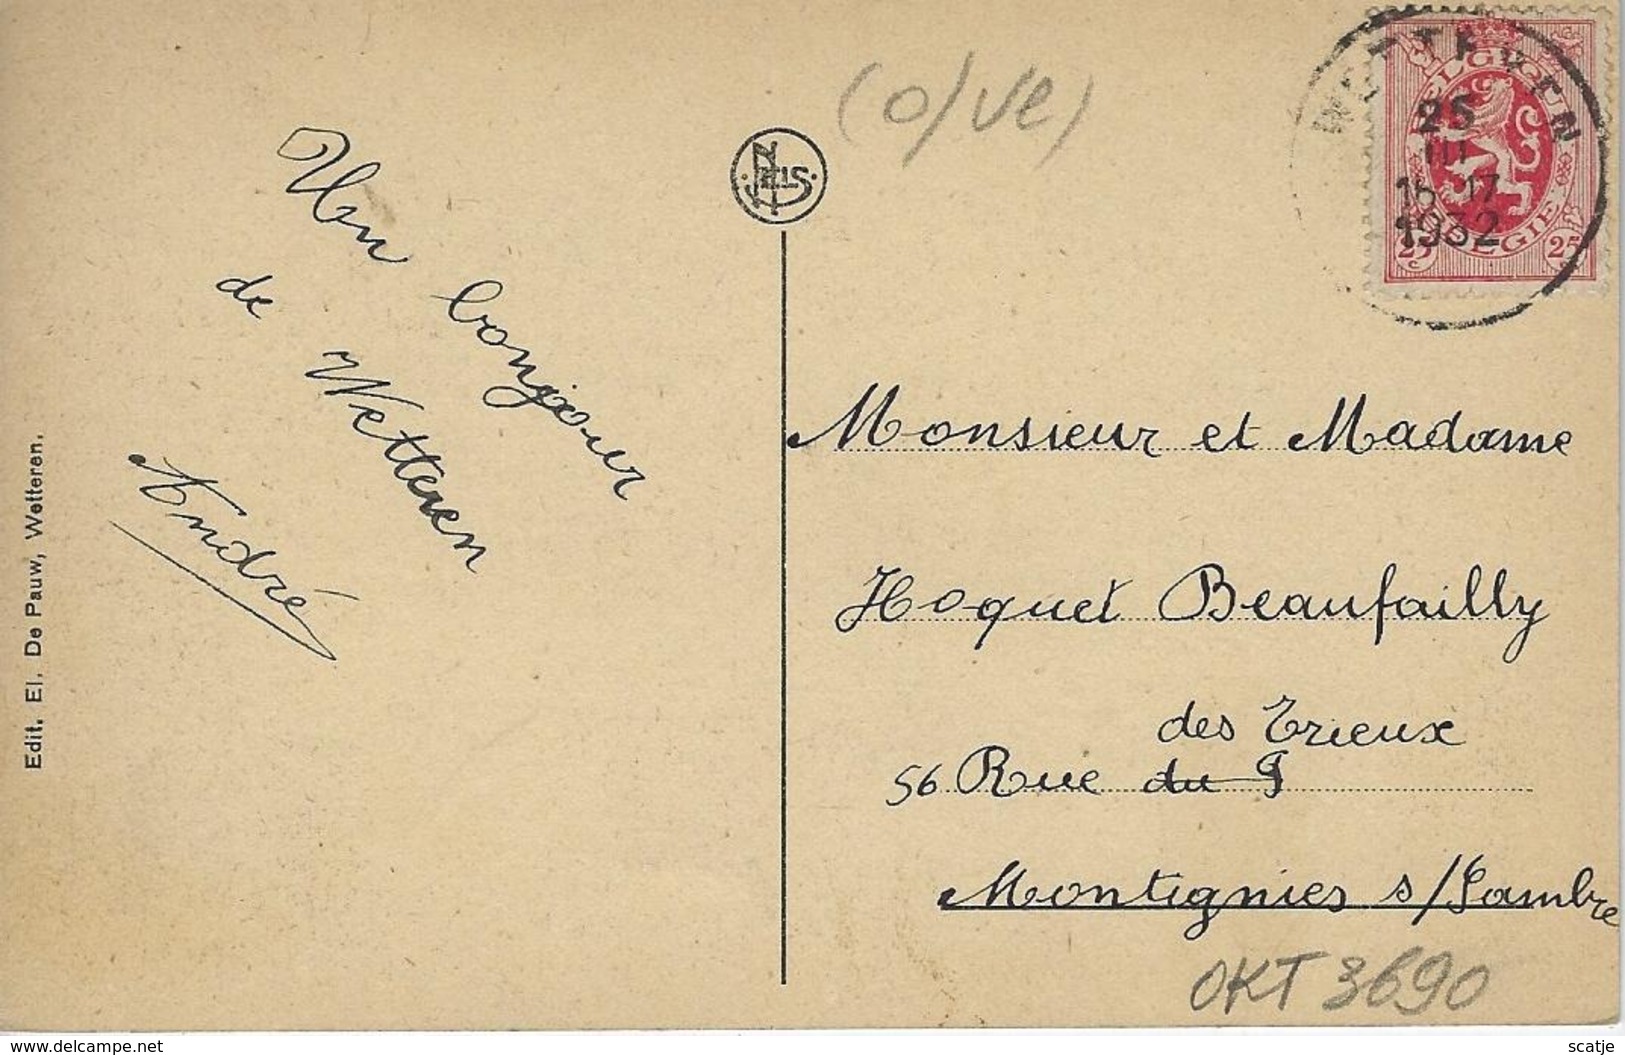 (O/VL)
WETTEREN
25
III
16-17
1932
BELGIQUE
BELGIË
25 25
NELS
Un bonjour
de Wetteren
André
Edit. El. De Pauw, Wetteren.
Monsieur et Madame
Hoquet Beaufailly
des Trieux
56 Rue du T
Montignies s/Sambre
OKT 3690
www.delcampe.net
scatje